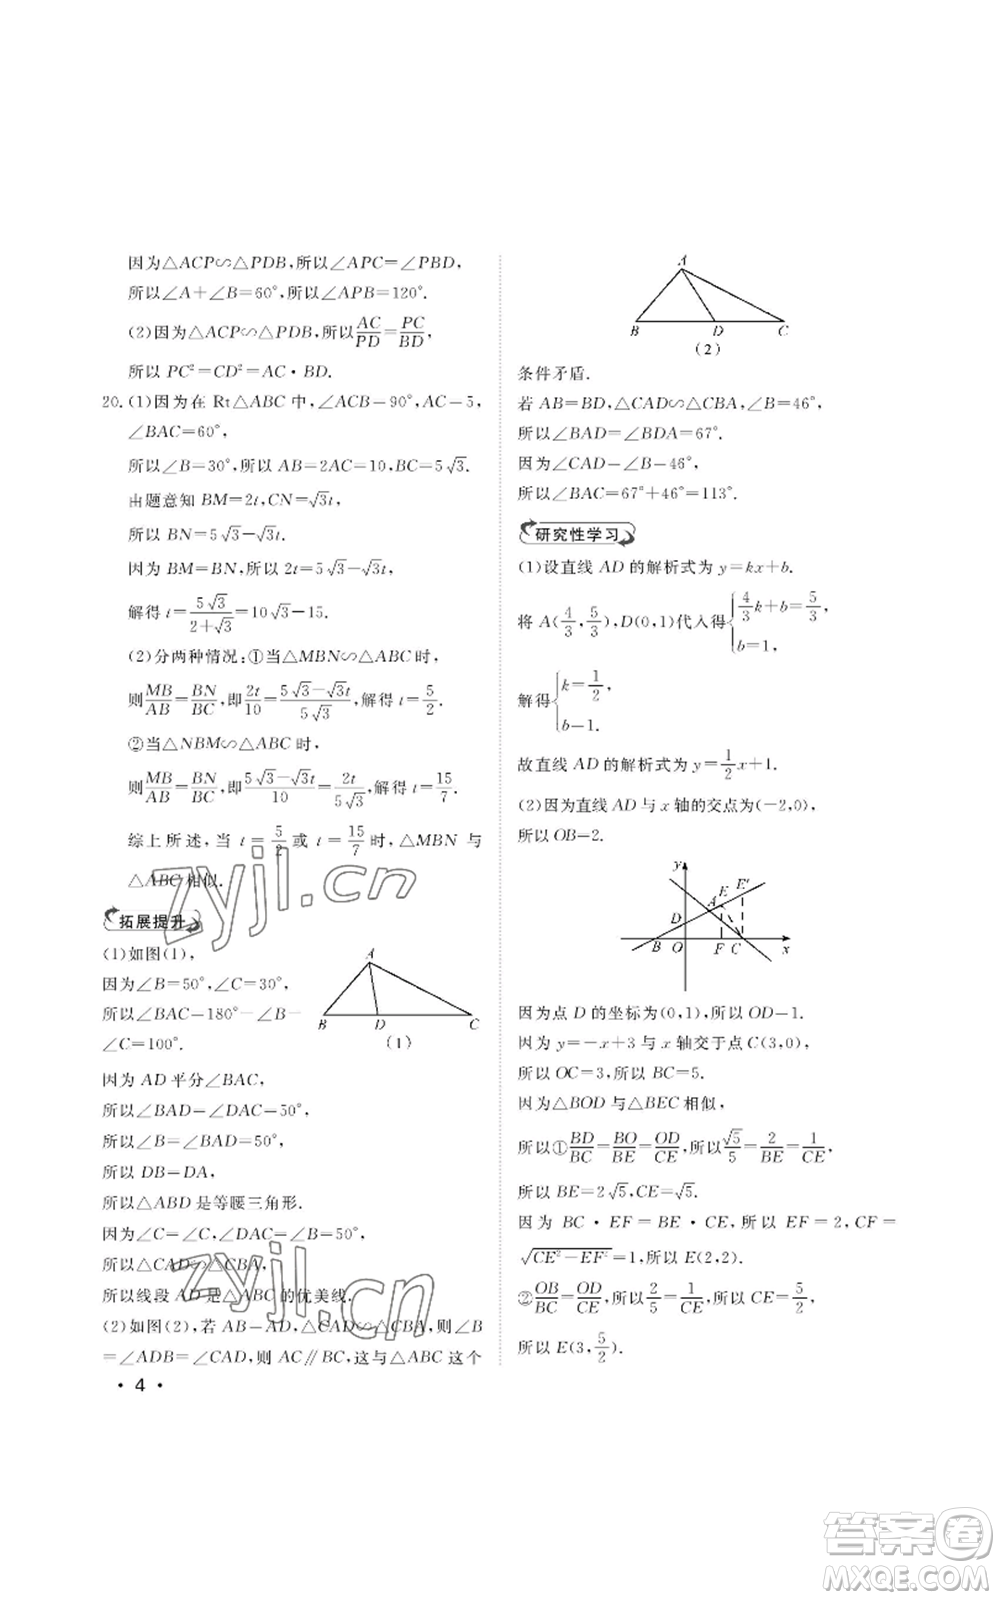 因为△ACP∽△PDB,所以∠APC=∠PBD,
所以∠A+∠B=60°,所以∠APB=120°.
(2)因为△ACP∽△PDB,所以AC/PD=PC/BD,
所以 PC²=CD²=AC·BD.
20.(1)因为在 Rt△ABC 中,∠ACB=90°,AC=5,
∠BAC=60°,
所以∠B=30°,所以 AB=2AC=10,BC=5√3.
由题意知 BM=2t,CN=√3t,
所以 BN=5√3-√3t.
因为 BM=BN,所以 2t=5√3-√3t,
解得 t=5√3/(2+√3)=10√3-15.
(2)分两种情况:①当△MBN∽△ABC 时,
则MB/AB=BN/BC,即2t/10=(5√3-√3t)/5√3,解得 t=5/2.
②当△NBM∽△ABC 时,
则MB/AB=BN/BC,即(5√3-√3t)/10=2t/5√3,解得 t=15/7.
综上所述,当 t=5/2 或 t=15/7 时,△MBN 与
△ABC 相似.
拓展提升
(1)如图(1),
因为∠B=50°,∠C=30°,
所以∠BAC=180°-∠B-
∠C=100°.
A
B D C
(1)
因为 AD 平分∠BAC,
所以∠BAD=∠DAC=50°,
所以∠B=∠BAD=50°,
所以 DB=DA,
所以△ABD 是等腰三角形.
因为∠C=∠C,∠DAC=∠B=50°,
所以△CAD∽△CBA,
所以线段 AD 是△ABC 的优美线.
(2)如图(2),若 AB=AD,△CAD∽△CBA,则∠B
=∠ADB=∠CAD,则 AC∥BC,这与△ABC 这个
·4·
A
B D C
(2)
条件矛盾.
若 AB=BD,△CAD∽△CBA,∠B=46°,
所以∠BAD=∠BDA=67°.
因为∠CAD=∠B=46°,
所以∠BAC=67°+46°=113°.
研究性学习
(1)设直线 AD 的解析式为 y=kx+b.
将 A(4/3,5/3),D(0,1)代入得{4/3k+b=5/3,
b=1,
解得{k=1/2,
b=1.
故直线 AD 的解析式为 y=1/2x+1.
(2)因为直线 AD 与 x 轴的交点为(-2,0),
所以 OB=2.
y E E′
A
D
B O F C x
因为点 D 的坐标为(0,1),所以 OD=1.
因为 y=-x+3 与 x 轴交于点 C(3,0),
所以 OC=3,所以 BC=5.
因为△BOD 与△BEC 相似,
所以①BD/BC=BO/BE=OD/CE,所以√5/5=2/BE=1/CE,
所以 BE=2√5,CE=√5.
因为 BC·EF=BE·CE,所以 EF=2,CF=
√(CE²-EF²)=1,所以 E(2,2).
②OB/BC=OD/CE,所以2/5=1/CE,所以 CE=5/2,
所以 E(3,5/2).
zyjl.cn
zyjl.cn
答案圈
MXQE.COM